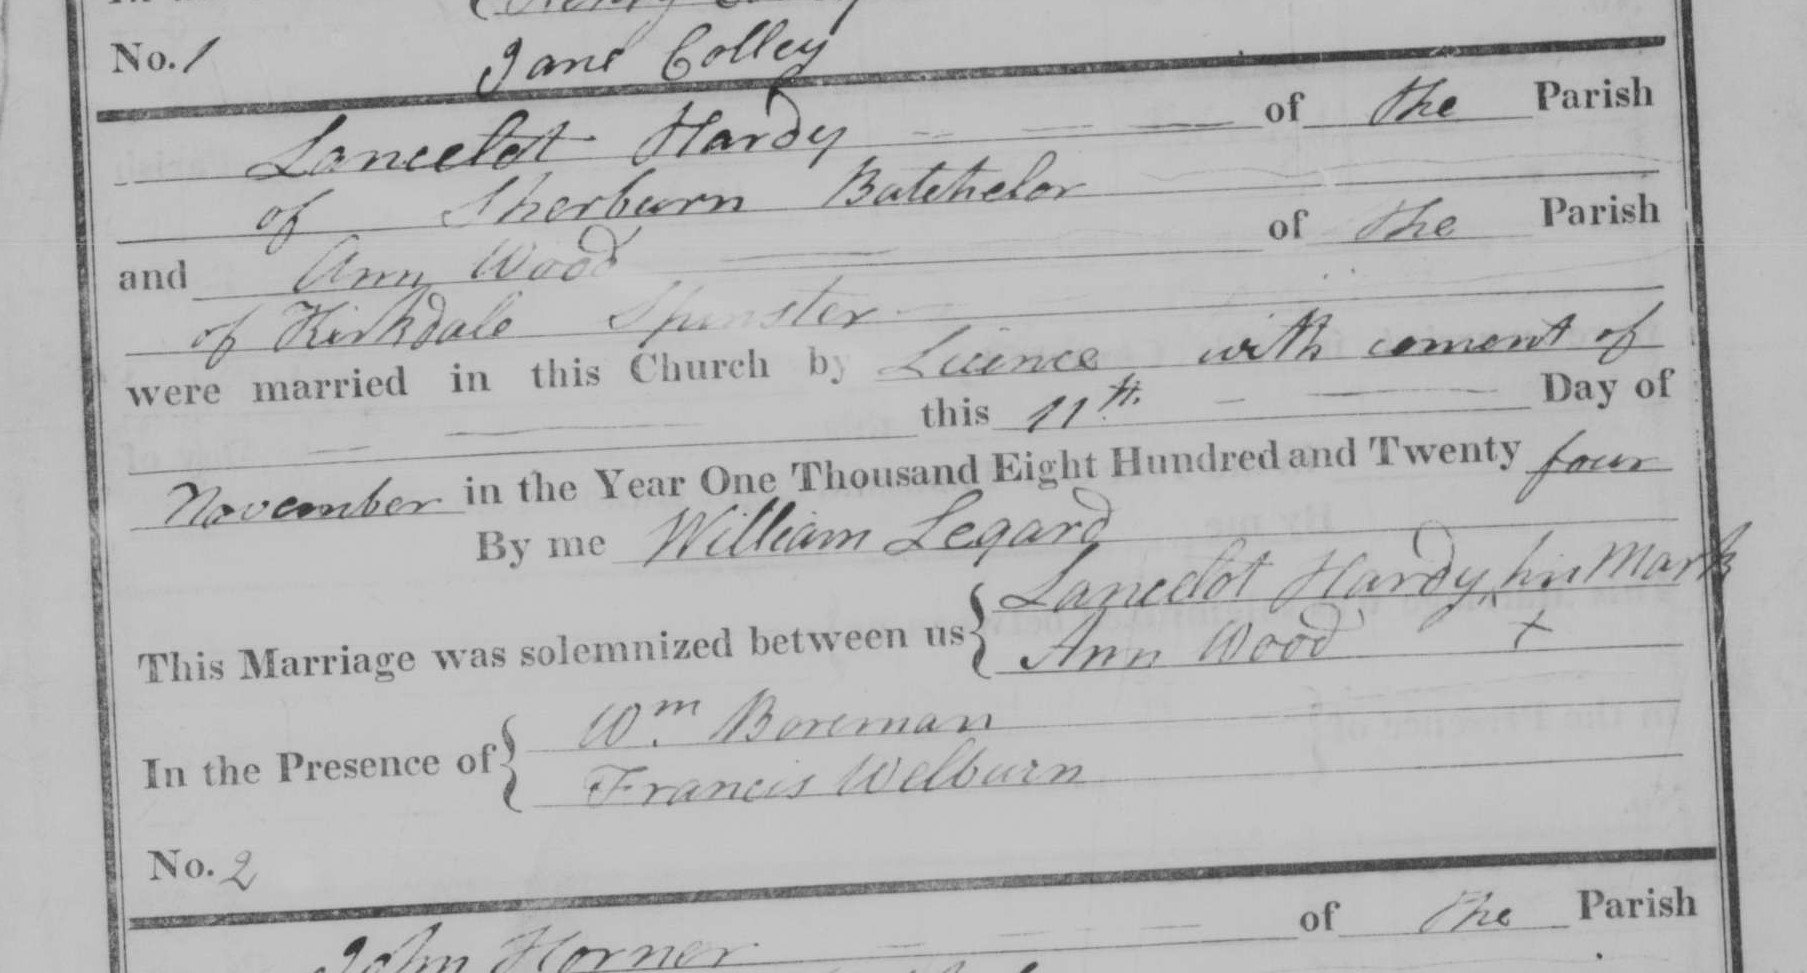 No. 1 Jane Colley
Lancelot Hardy of the Parish
of Sherburn Batchelor
and Ann Wood of the Parish
of Kirkdale Spinster
were married in this Church by Licence with consent of
this 11th. Day of
November in the Year One Thousand Eight Hundred and Twenty four
By me William Legard
Lancelot Hardy, his Mark
This Marriage was solemnized between us
Ann Wood X
Wm. Boreman
In the Presence of
Francis Welburn
No. 2
of the Parish
John Horner